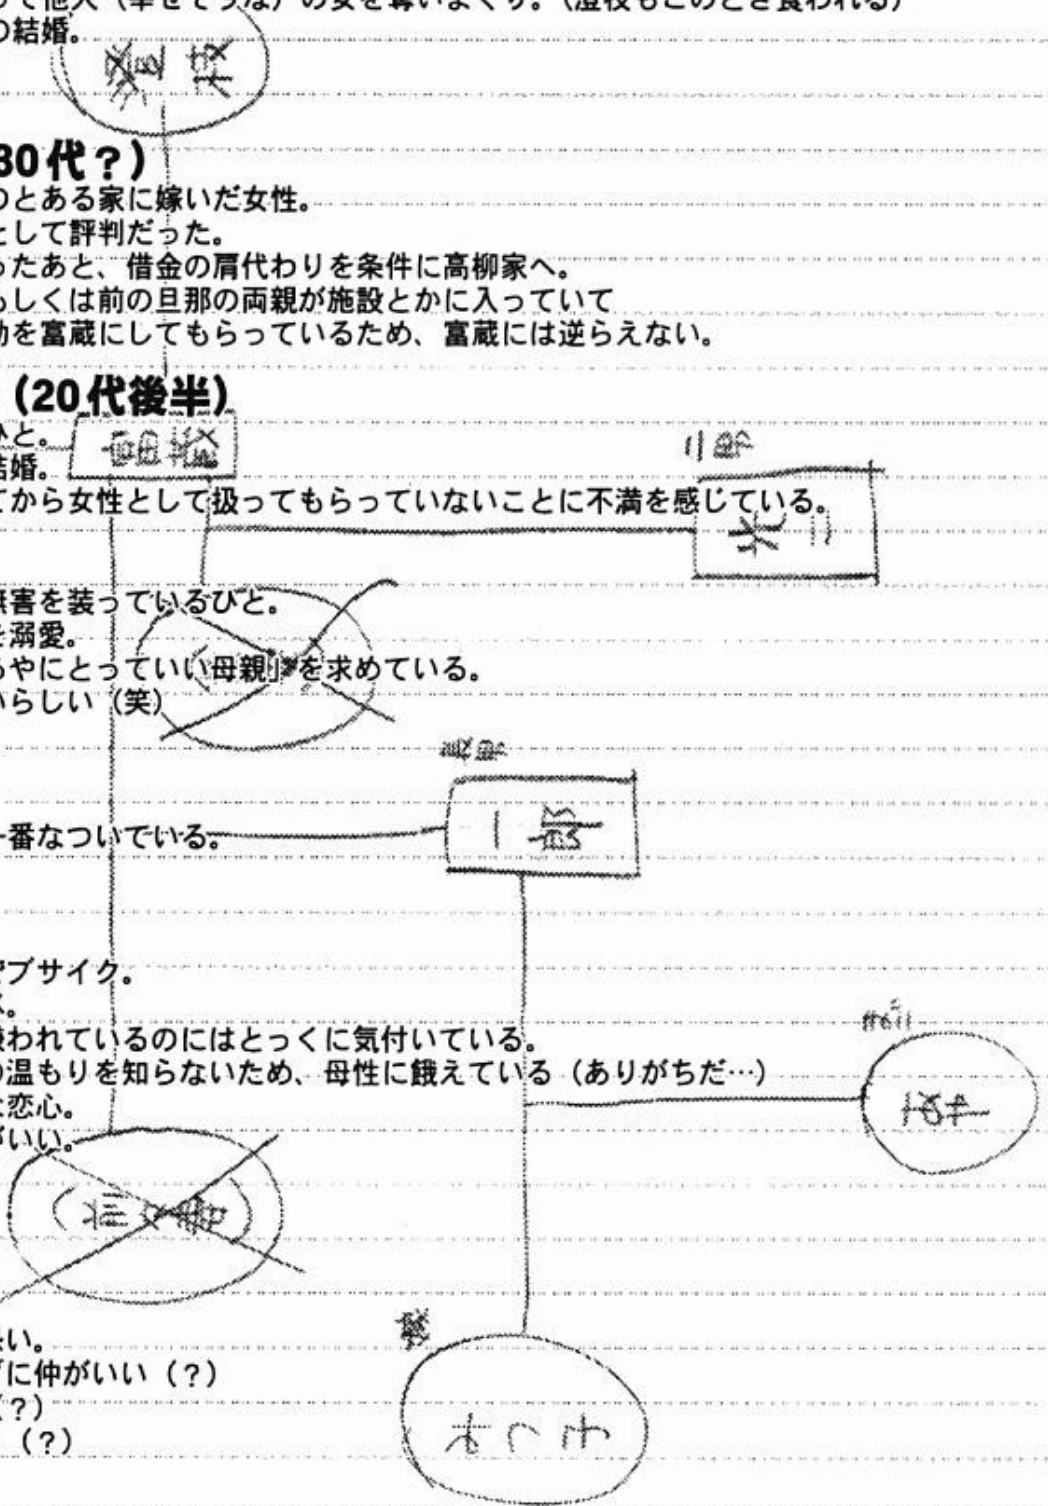 って他人（幸せそうな）の女を奪いまくり。（澄枝もこのとき食われる）
の結婚。
澄枝
30代？）
のとある家に嫁いだ女性。
として評判だった。
ったあと、借金の肩代わりを条件に高柳家へ。
もしくは前の旦那の両親が施設とかに入っていて
助を富蔵にしてもらっているため、富蔵には逆らえない。
（20代後半）
ひと。
富蔵
結婚。
てから女性として扱ってもらっていないことに不満を感じている。
光二
無害を装っているひと。
を溺愛。
あやにとっていい母親」を求めている。
いらしい（笑）
長男
一郎
一番なついている。
デブサイク。
く。
嫌われているのにはとっくに気付いている。
の温もりを知らないため、母性に餓えている（ありがちだ…）
な恋心。
がいい。
良い。
に仲がいい（？）
（？）
（？）